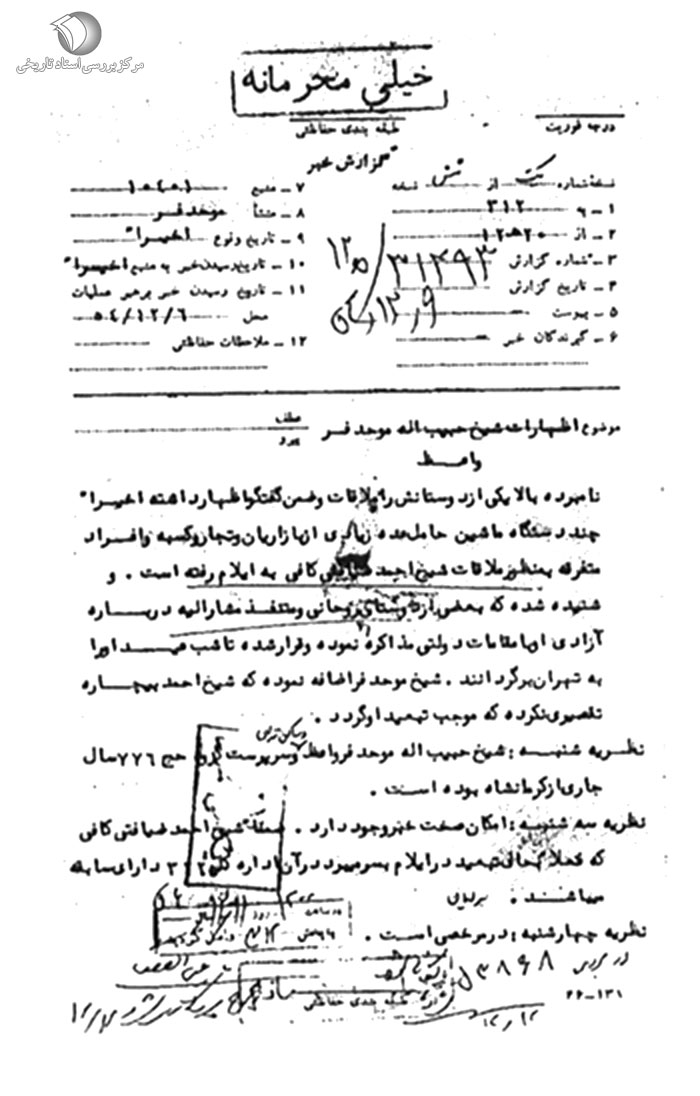 مرکز بررسی اسناد تاریخی
خیلی محرمانه
طبقه بندی حفاظتی
درجه فوریت
گزارش خبر
نسخه شماره یک از شش نسخه
۱ ـ به ۳۱۲
۲ ـ از ۲۰ه۱۲
۳ ـ شماره گزارش ۳۱۴۹۳ / ۲۰ه۱۲
۴ ـ تاریخ گزارش ۹ر۱۲ر
۵ ـ پیوست
۶ ـ گیرندگان خبر
۷ ـ منبع
۸ ـ منشأ موحد فر
۹ ـ تاریخ وقوع اخیرا"
۱۰ ـ تاریخ رسیدن خبر به منبع اخیرا"
۱۱ ـ تاریخ رسیدن خبر برهبر عملیات
محل ۵۴/۱۲/۶
۱۲ ـ ملاحظات حفاظتی
موضوع اظهارات شیخ حبیب اله موحد فر
عطف
پیرو
واعظ
نامبرده بالا یکی از دوستانش را ملاقات و ضمن گفتگو اظهار داشته اخیرا"
چند دستگاه ماشین حامل عده زیادی از بازاریان و تجار و کسبه و افراد
متفرقه بمنظور ملاقات شیخ احمد ضیافتی کافی به ایلام رفته است . و
شنیده شده که بعضی از دوستان روحانی و متنفذ مشارالیه در باره
آزادی او با مقامات دولتی مذاکره نموده و قرار شده تا شب عید او را
به تهران برگردانند . شیخ موحد فر اضافه نموده که شیخ احمد بیچاره
تقصیری نکرده که موجب تبعید او گردد .
نظریه شنبه : شیخ حبیب اله موحد فر واعظ و سرپرست حج ۷۷۶ سال
جاری از کرمانشاه بوده است .
نظریه سه شنبه : امکان صحت خبر وجود دارد . ضمنا" شیخ احمد ضیافتی کافی
که فعلا بحال تبعید در ایلام بسر میبرد در آن اداره کل دارای سابقه
میباشند .
نظریه چهارشنبه : در مرخصی است .
طبقه بندی حفاظتی
۲۲-۱۳۱
۱۲ر۱۲